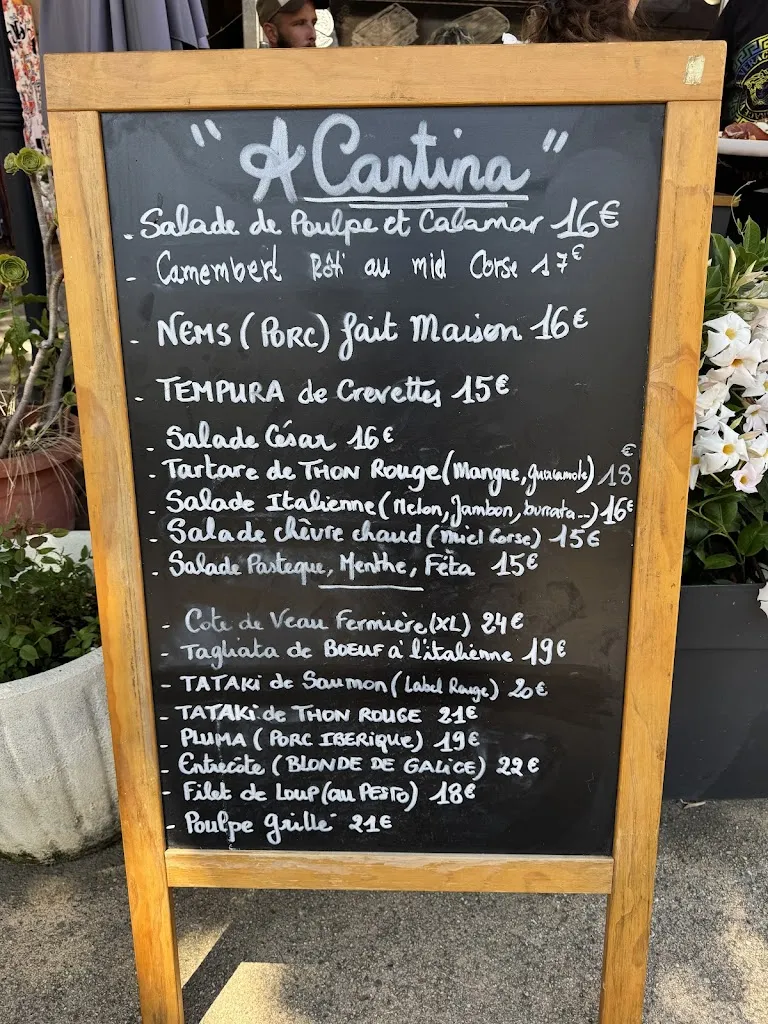 " A Cantina "
- Salade de Poulpe et Calamar 16€
- Camembert Rôti au miel Corse 17€
- NEMS (PORC) fait Maison 16€
- TEMPURA de Crevettes 15€
- Salade César 16€
- Tartare de THON ROUGE (Mangue, guacamole) 18€
- Salade Italienne (Melon, Jambon, burrata...) 16€
- Salade chèvre chaud (miel Corse) 15€
- Salade Pasteque, Menthe, Fêta 15€
- Cote de Veau Fermière (XL) 24€
- Tagliata de BOEUF à l'italienne 19€
- TATAKI de Saumon (Label Rouge) 20€
- TATAKI de THON ROUGE 21€
- PLUMA (PORC IBERIQUE) 19€
- Entrecôte (BLONDE DE GALICE) 22€
- Filet de Loup (au PESTO) 18€
- Poulpe grillé 21€